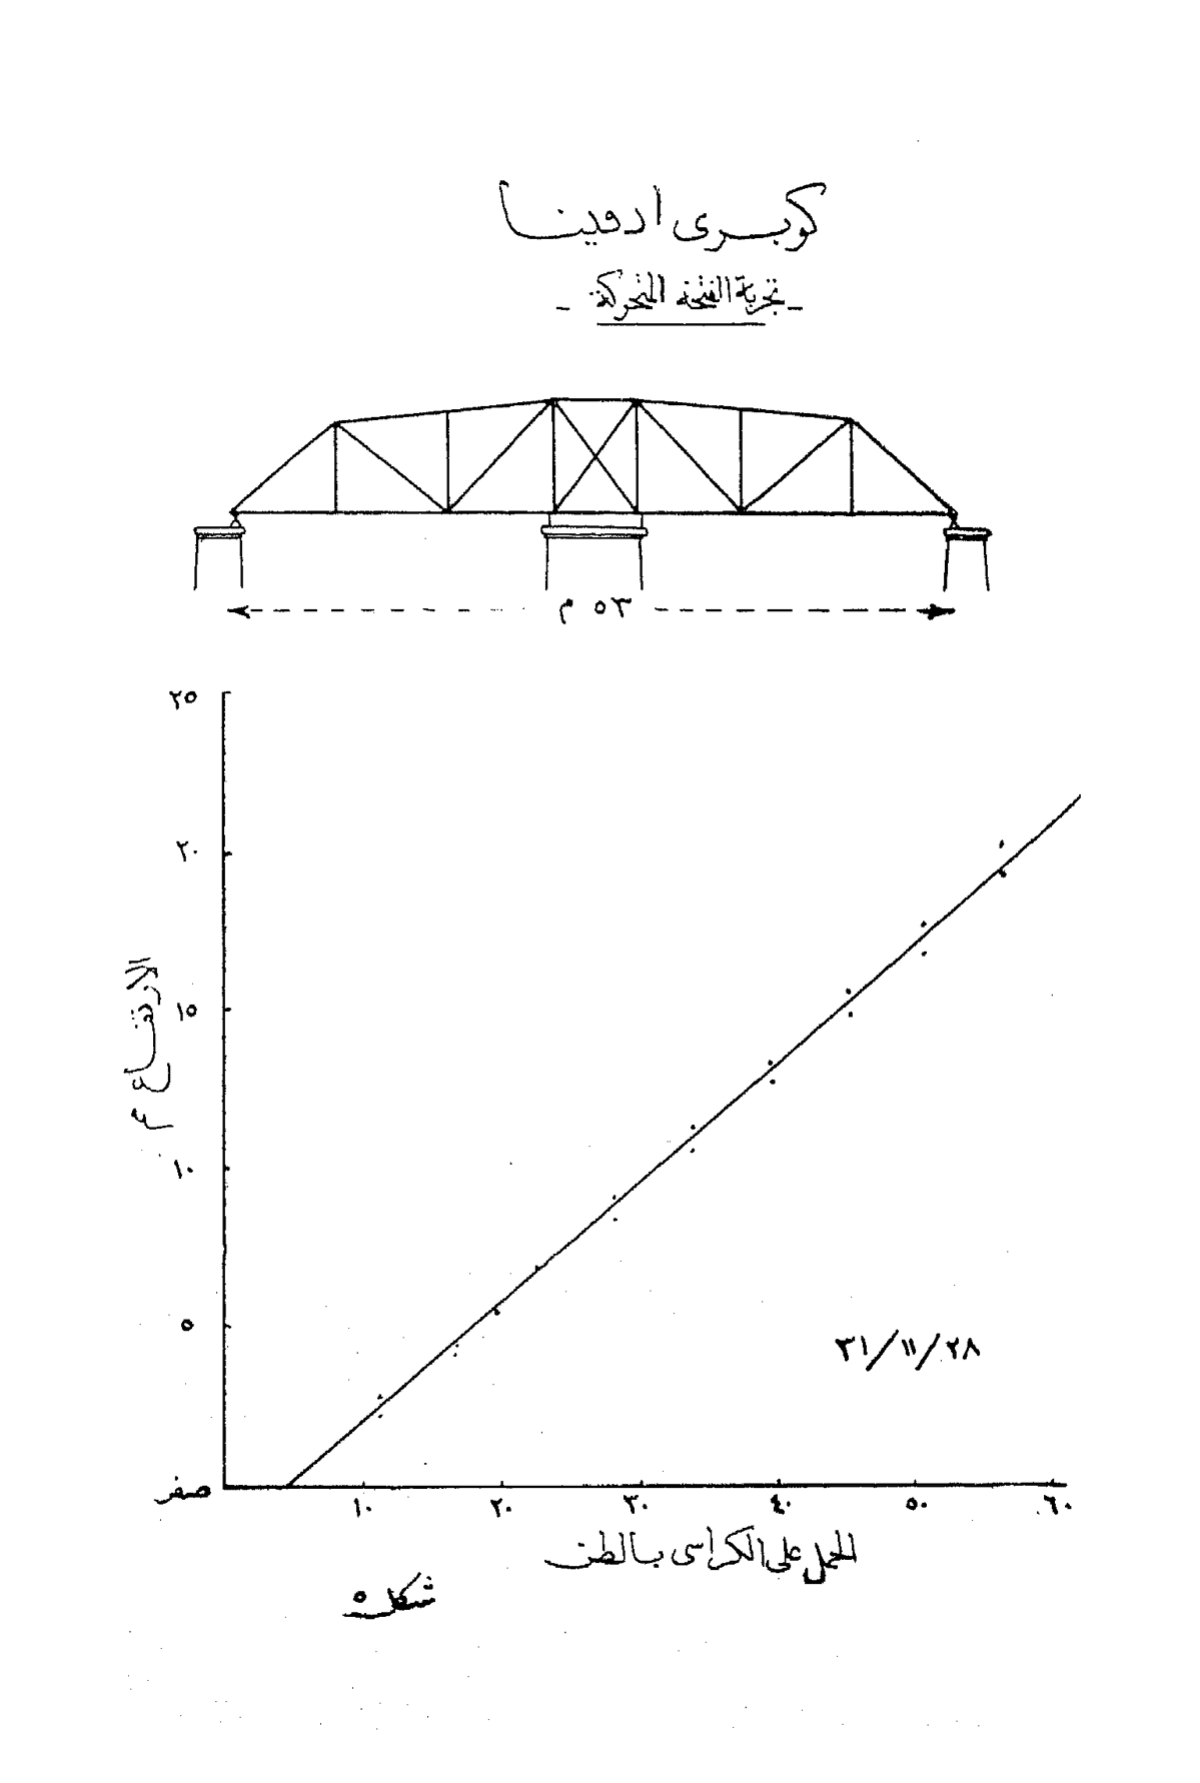 كوبرى ادفينا
- تجربة الفتحة المتحركة -
٥٣ م
٢٥
٢٠
١٥
١٠
٥
صفر
الارتفاع
١٠ ٢٠ ٣٠ ٤٠ ٥٠ ٦٠
٣١/١١/٢٨
الحمل على الكراسى بالطن
شكل ٥